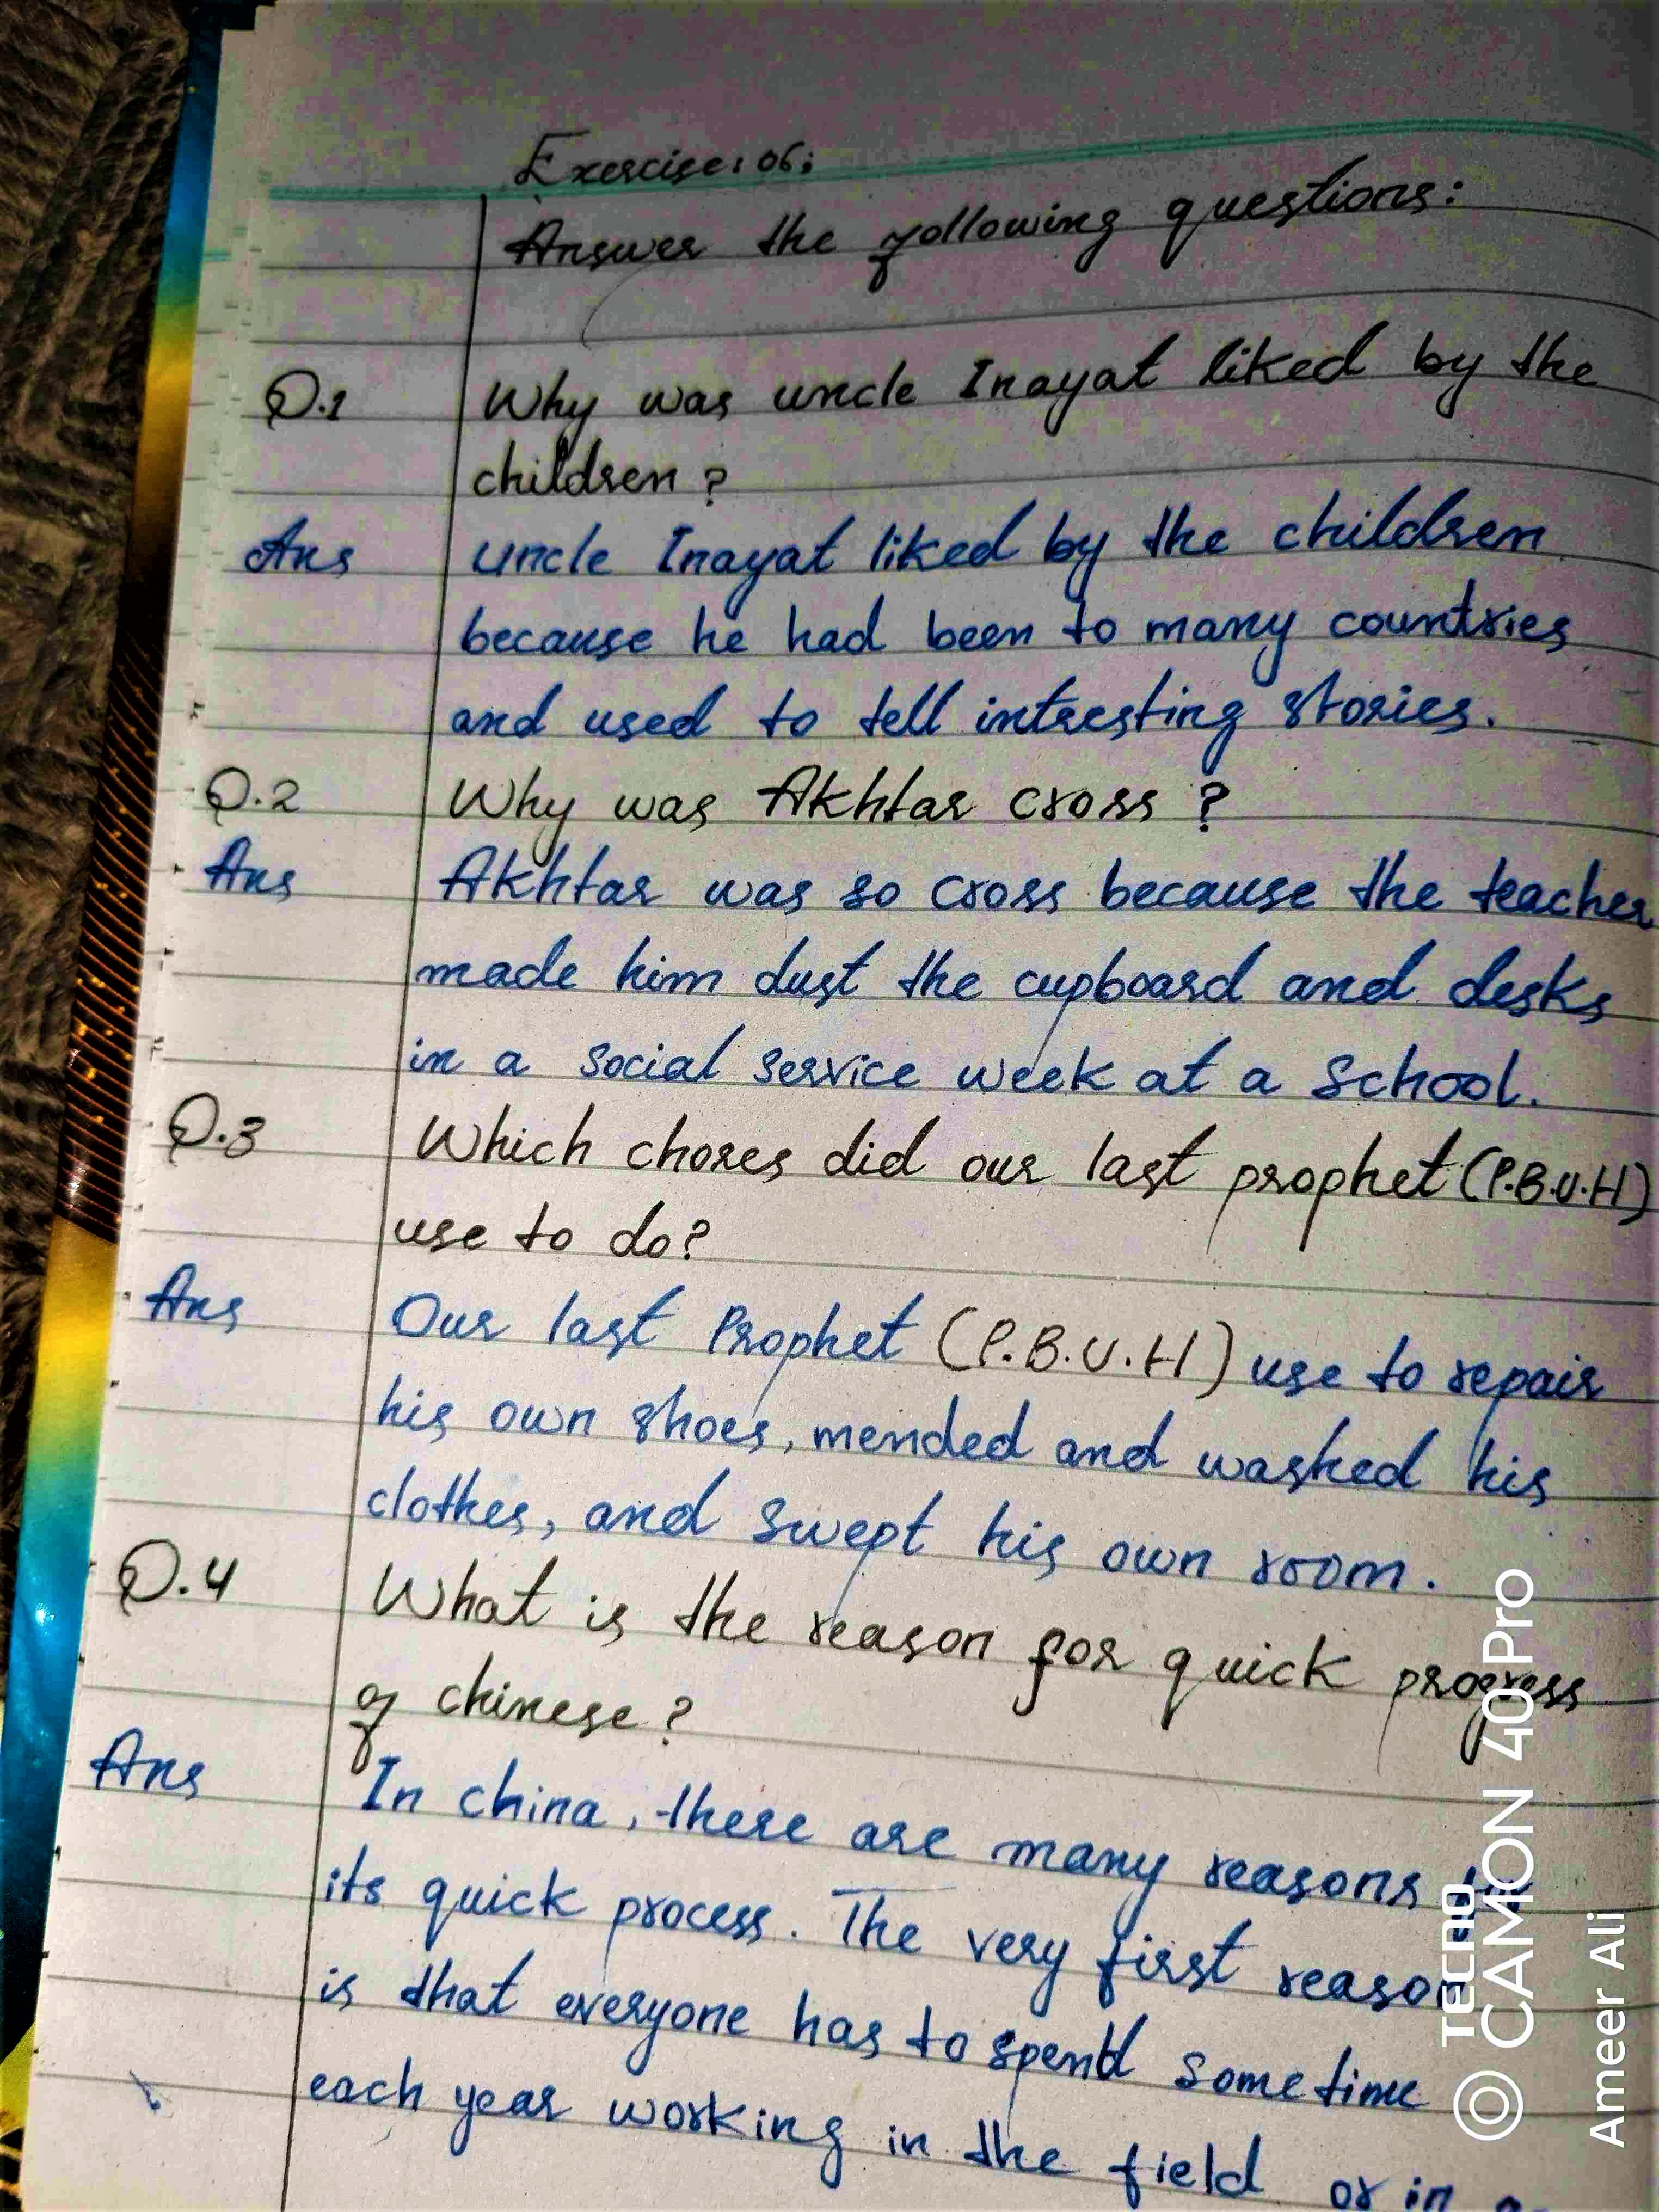 Exercise: 06:
Answer the following questions:
Q.1 Why was uncle Inayat liked by the
children?
Ans uncle Inayat liked by the children
because he had been to many countries
and used to tell intresting stories.
Q.2 Why was Akhtar cross?
Ans Akhtar was so cross because the teacher
made him dust the cupboard and desks
in a social service week at a school.
Q.3 Which chores did our last prophet (P.B.U.H)
use to do?
Ans Our last Prophet (P.B.U.H) use to repair
his own shoes, mended and washed his
clothes, and swept his own room.
Q.4 What is the reason for quick progress
of chinese?
Ans In china, there are many reasons
its quick process. The very first reason
is that everyone has to spend some time
each year working in the field or in
TECNO
CAMON 40 Pro
Ameer Ali